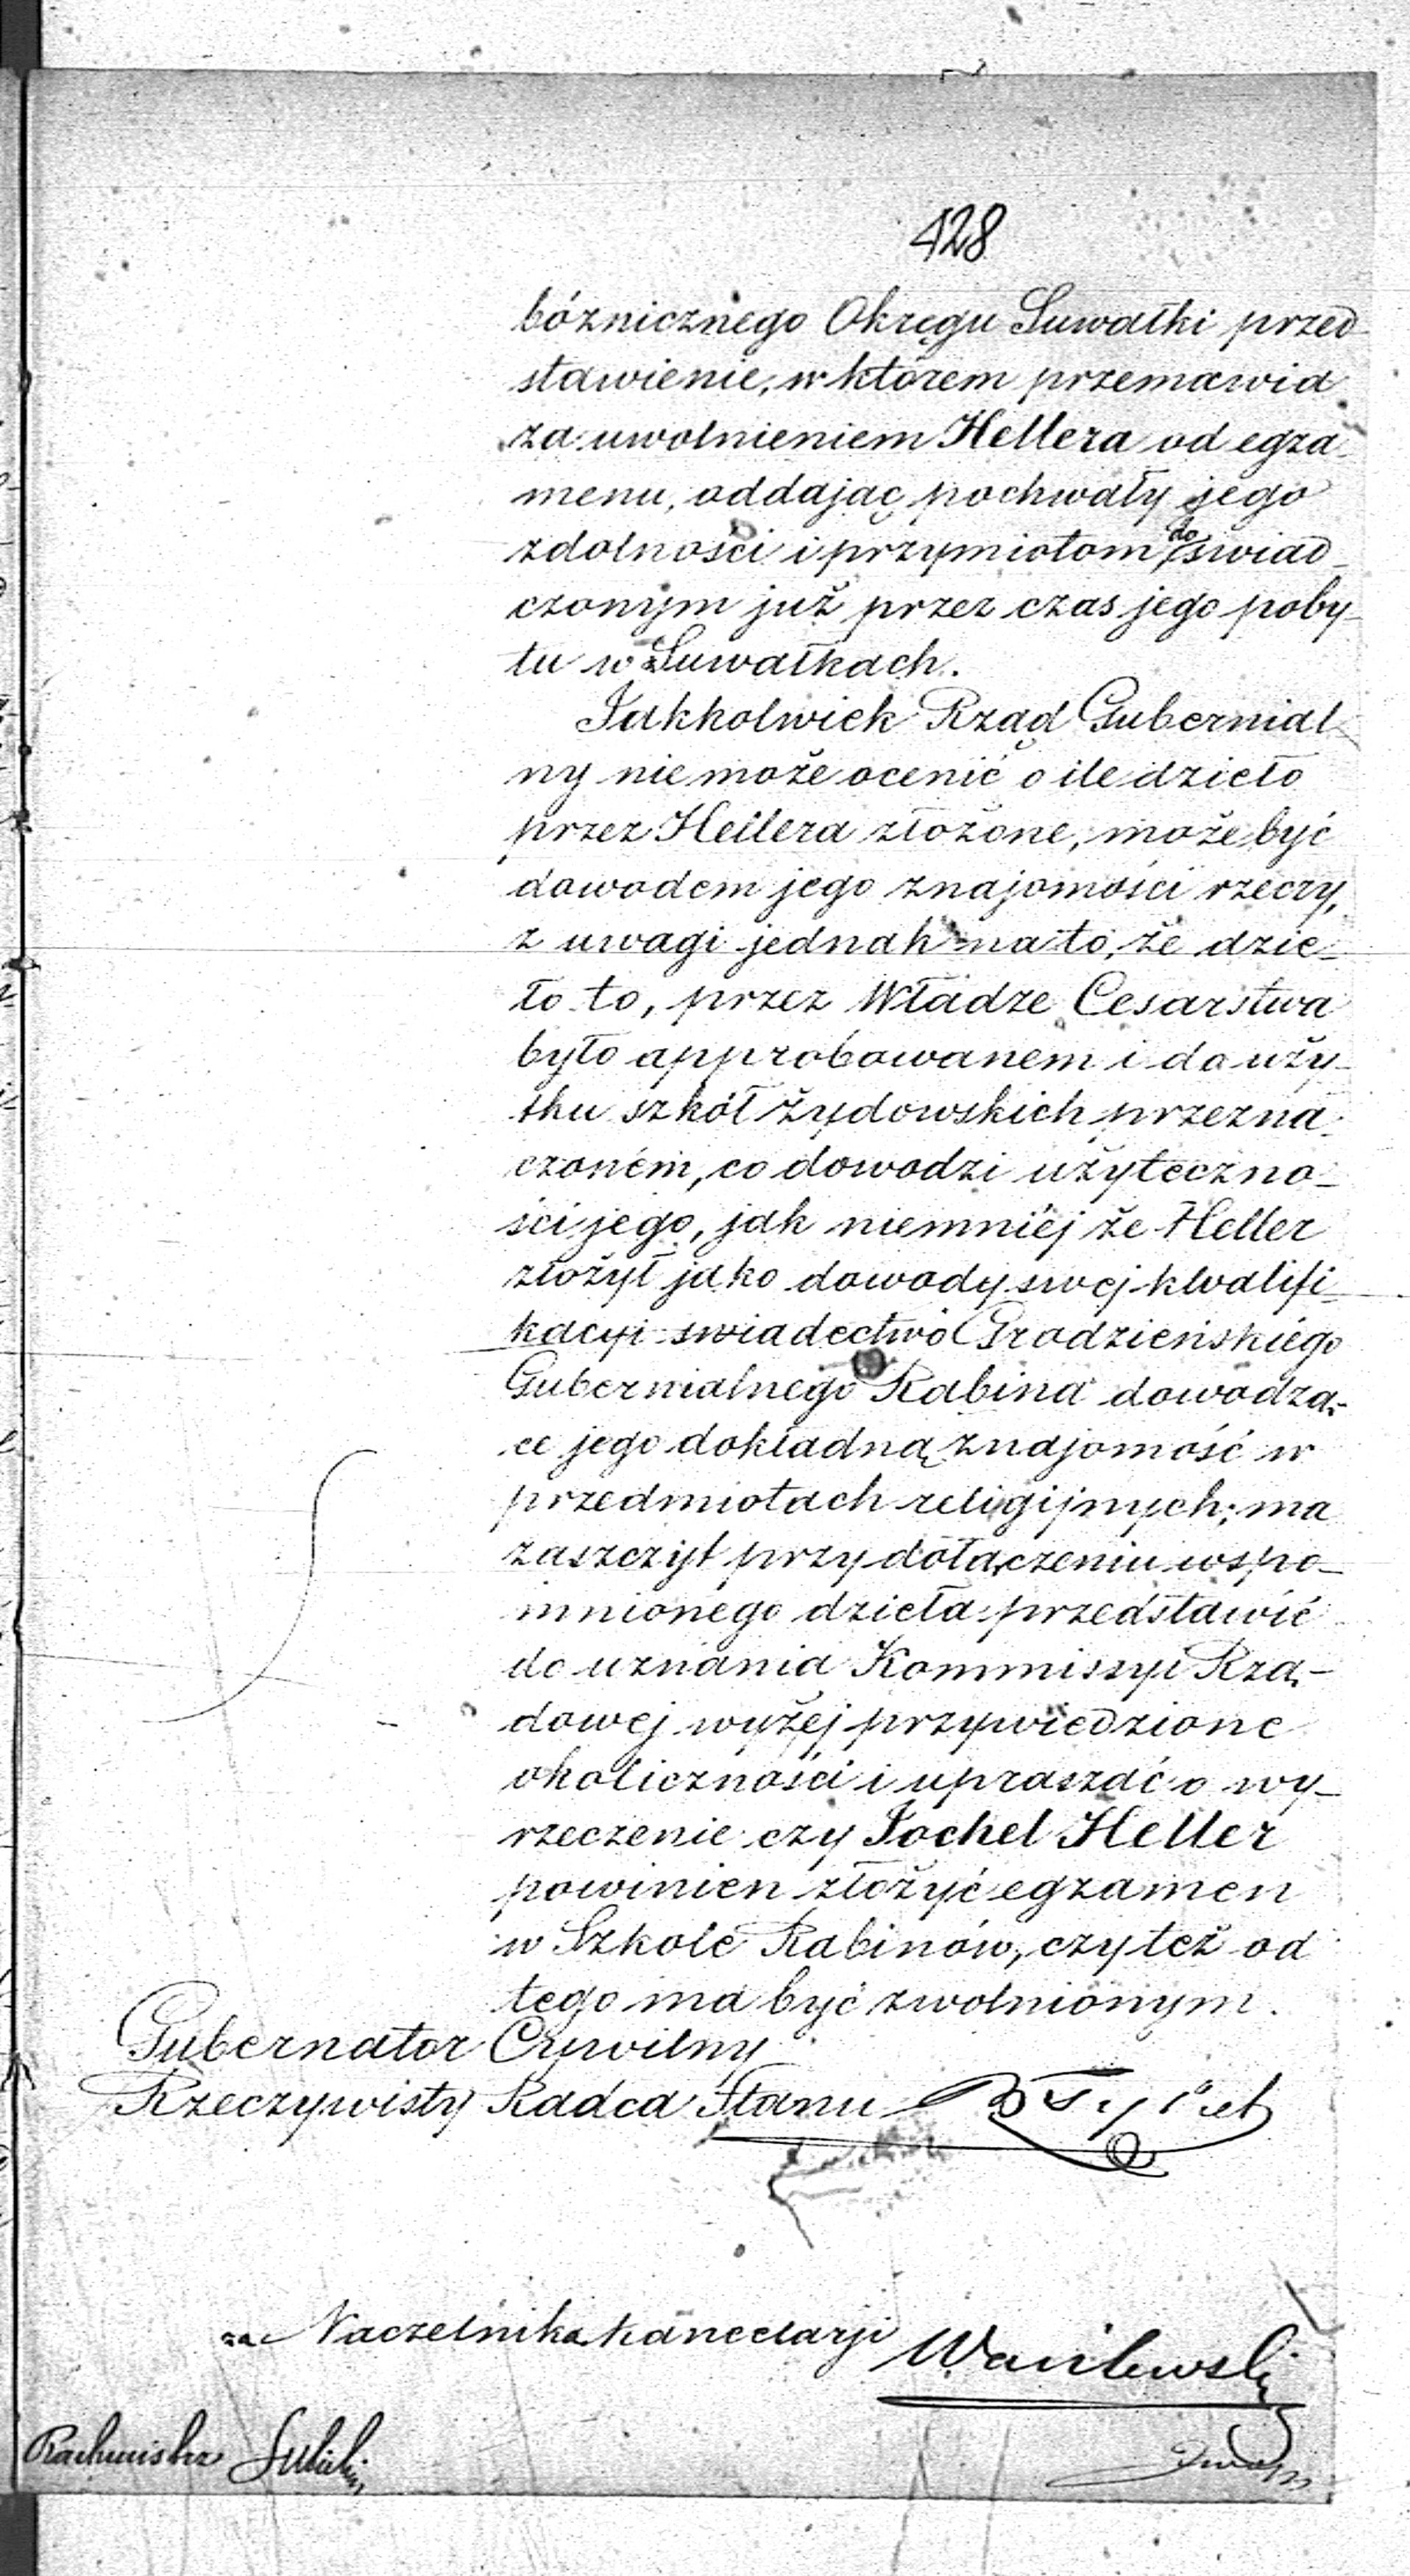 428
bóżnicznego Okręgu Suwałki przed-
stawienie, w którem przemawia
za uwolnieniem Hellera od egza-
menu, oddając pochwały jego
zdolności i przymiotom doświad-
czonym już przez czas jego poby-
tu w Suwałkach.
Jakkolwiek Rząd Gubernial
ny nie może ocenić o ile dzieło
przez Hellera złożone, może być
dowodem jego znajomości rzeczy,
z uwagi jednak na to, że dzie-
ło to, przez Władze Cesarstwa
było approbowanem i do uży-
tku szkół żydowskich przezna-
czoném, co dowodzi użyteczno-
ści jego, jak niemniéj że Heller
złożył jako dowody swej kwalifi-
kacyi swiadectwo Grodzieńskiego
Gubernialnego Rabina dowodzą-
ce jego dokładną znajomość w
przedmiotach religijnych; ma
zaszczyt przy dołączeniu wspo-
mnionego dzieła przedstawić
do uznania Kommissyi Rzą-
dowej wyżej przywiedzione
okoliczności i upraszać o wy-
rzeczenie czy Jochel Heller
powinien złożyć egzamen
w Szkole Rabinów, czy też od
tego ma być zwolnionym.
Gubernator Cywilny
Rzeczywisty Radca Stanu
za Naczelnika Kancelarji Wasilewski